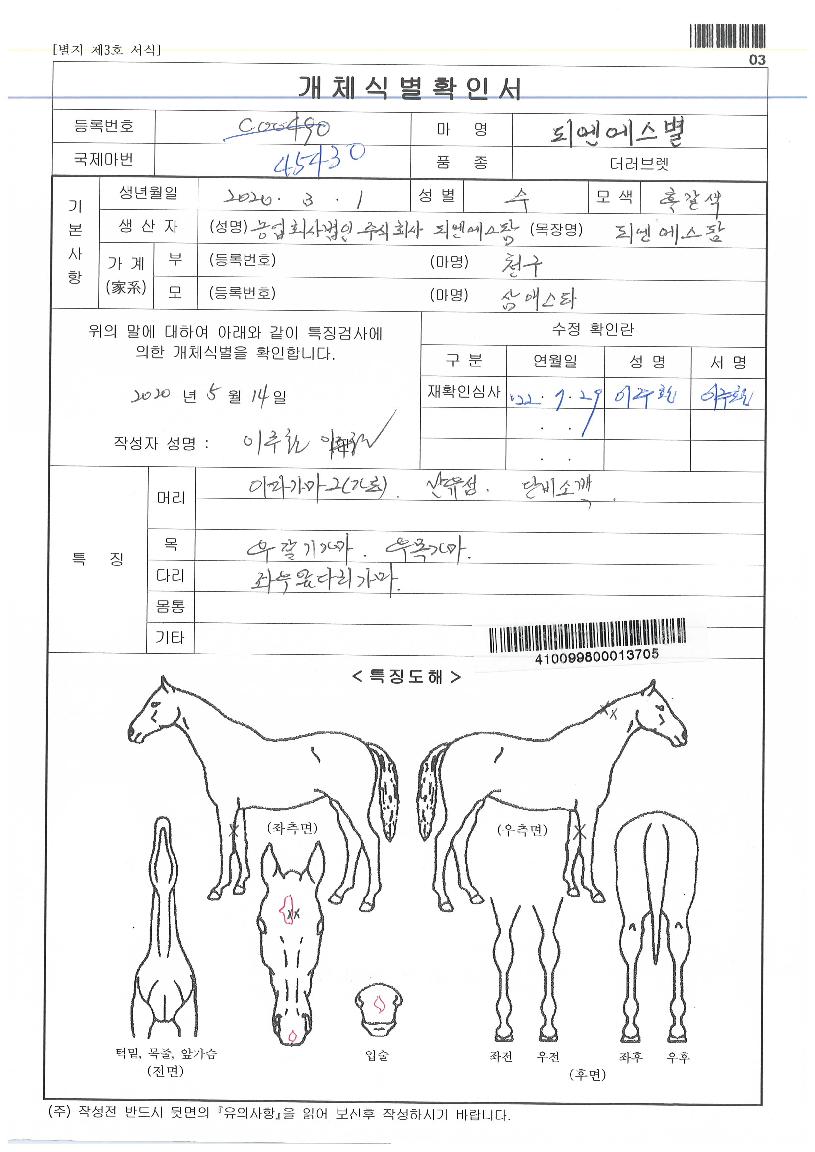 [별지 제3호 서식]
03
개체식별확인서
등록번호 C00490 마 명 되엔에스별
국제마번 45430 품 종 더러브렛
기본사항
생년월일 2020. 3. 1 성 별 수 모 색 흑갈색
생 산 자 (성명) 농업회사법인 주식회사 되엔에스팜 (목장명) 되엔에스팜
가 계 (家系) 부 (등록번호) (마명) 천구
모 (등록번호) (마명) 삼애스타
위의 말에 대하여 아래와 같이 특징검사에
의한 개체식별을 확인합니다.
2020 년 5 월 14 일
작성자 성명 :
수정 확인란
구 분 연월일 성 명 서 명
재확인심사 '22. 7. 29
. .
. .
특 징
머리
목 우갈기가마. 우목가마.
다리
몸통
기타
410099800013705
< 특징도해 >
(좌측면) (우측면)
턱밑, 목줄, 앞가슴
(전면)
입술
좌전 우전 좌후 우후
(후면)
(주) 작성전 반드시 뒷면의 『유의사항』을 읽어 보신후 작성하시기 바랍니다.